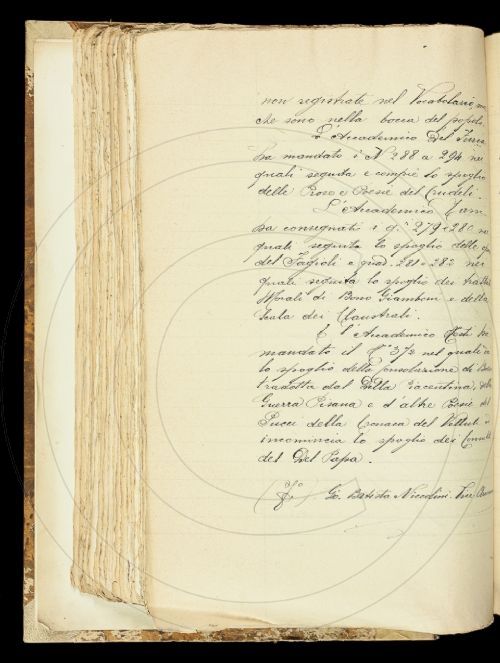 non registrate nel Vocabolario, ma
che sono nella bocca del popolo.
L'Accademico Del Furia
ha mandato i N.i 288 a 294 nei
quali seguita e compie lo spoglio
delle Prose e Poesie del Crudeli.
L'Accademico
ha consegnati i q.i 279 e 280 ne
quali seguita lo spoglio delle
del Fagioli e quad. 281 e 282 nei
quali seguita lo spoglio dei Tratta
Morali di Bono Giamboni e della
Scala dei Claustrali.
E l'Accademico ha
mandato il 372 nel quale
lo spoglio della Consolazione di Boe
tradotta dal Della Piacentina, della
Guerra Pisana e d'altre Poesie del
Pucci della Cronaca del Velluti e
incomincia lo spoglio dei Consulti
del Del Papa.
G. Batista Niccolini. Vice